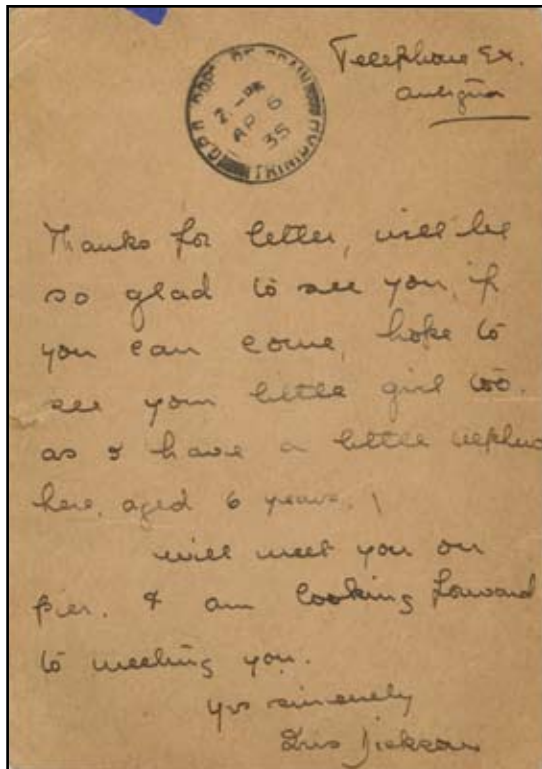 Telephone Ex.
Antigua
G.P.O. PORT OF SPAIN TRINIDAD
2-PM
AP 6
35
Thanks for letter, will be
so glad to see you, if
you can come, hope to
see your little girl too.
as I have a little nephew
here, aged 6 years.
will meet you on
pier. & am looking forward
to meeting you.
yrs sincerely
Iris Dickson